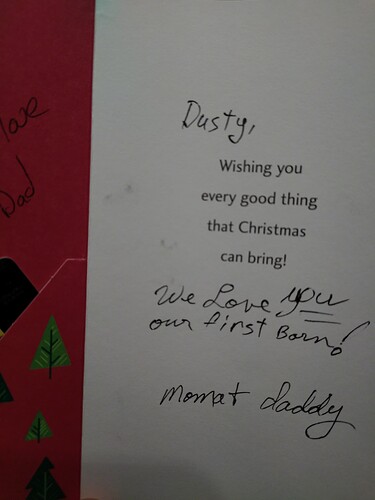 love
Dad
Dusty,
Wishing you
every good thing
that Christmas
can bring!
We Love you
our first Born!
Moma+ daddy